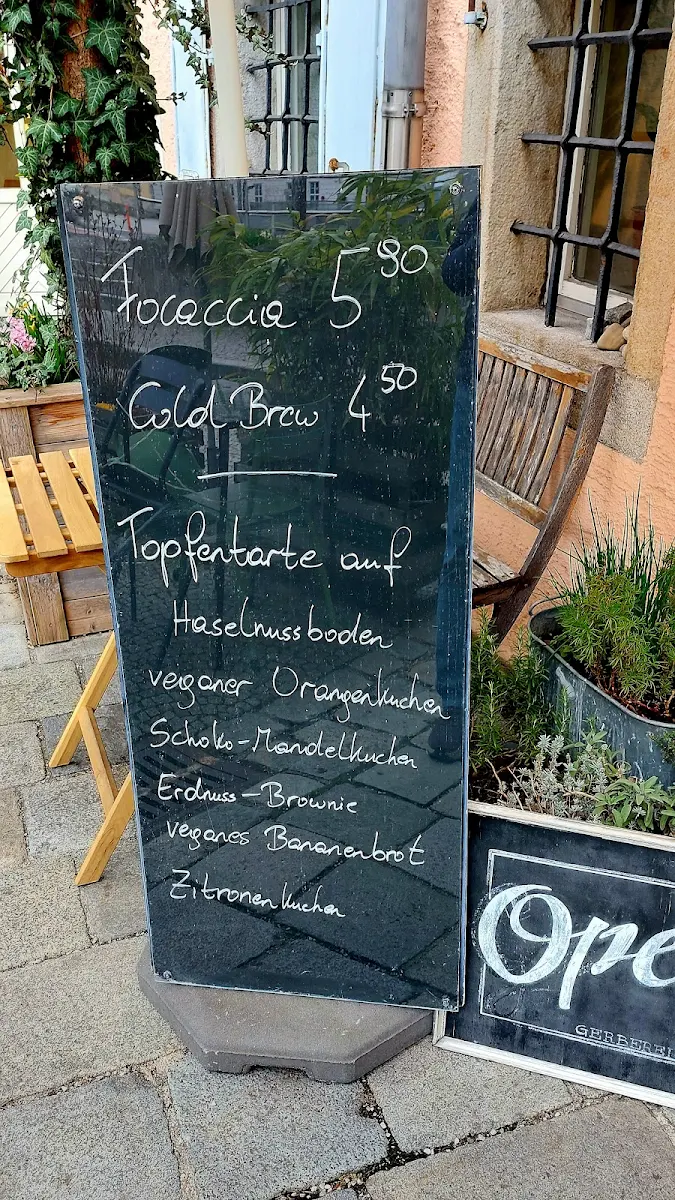 Focaccia 5 90
Cold Brew 4 50
Topfentarte auf
Haselnussboden
veganer Orangenkuchen
Schoko-Mandelkuchen
Erdnuss-Brownie
veganes Bananenbrot
Zitronenkuchen
Ope
GERBEREI